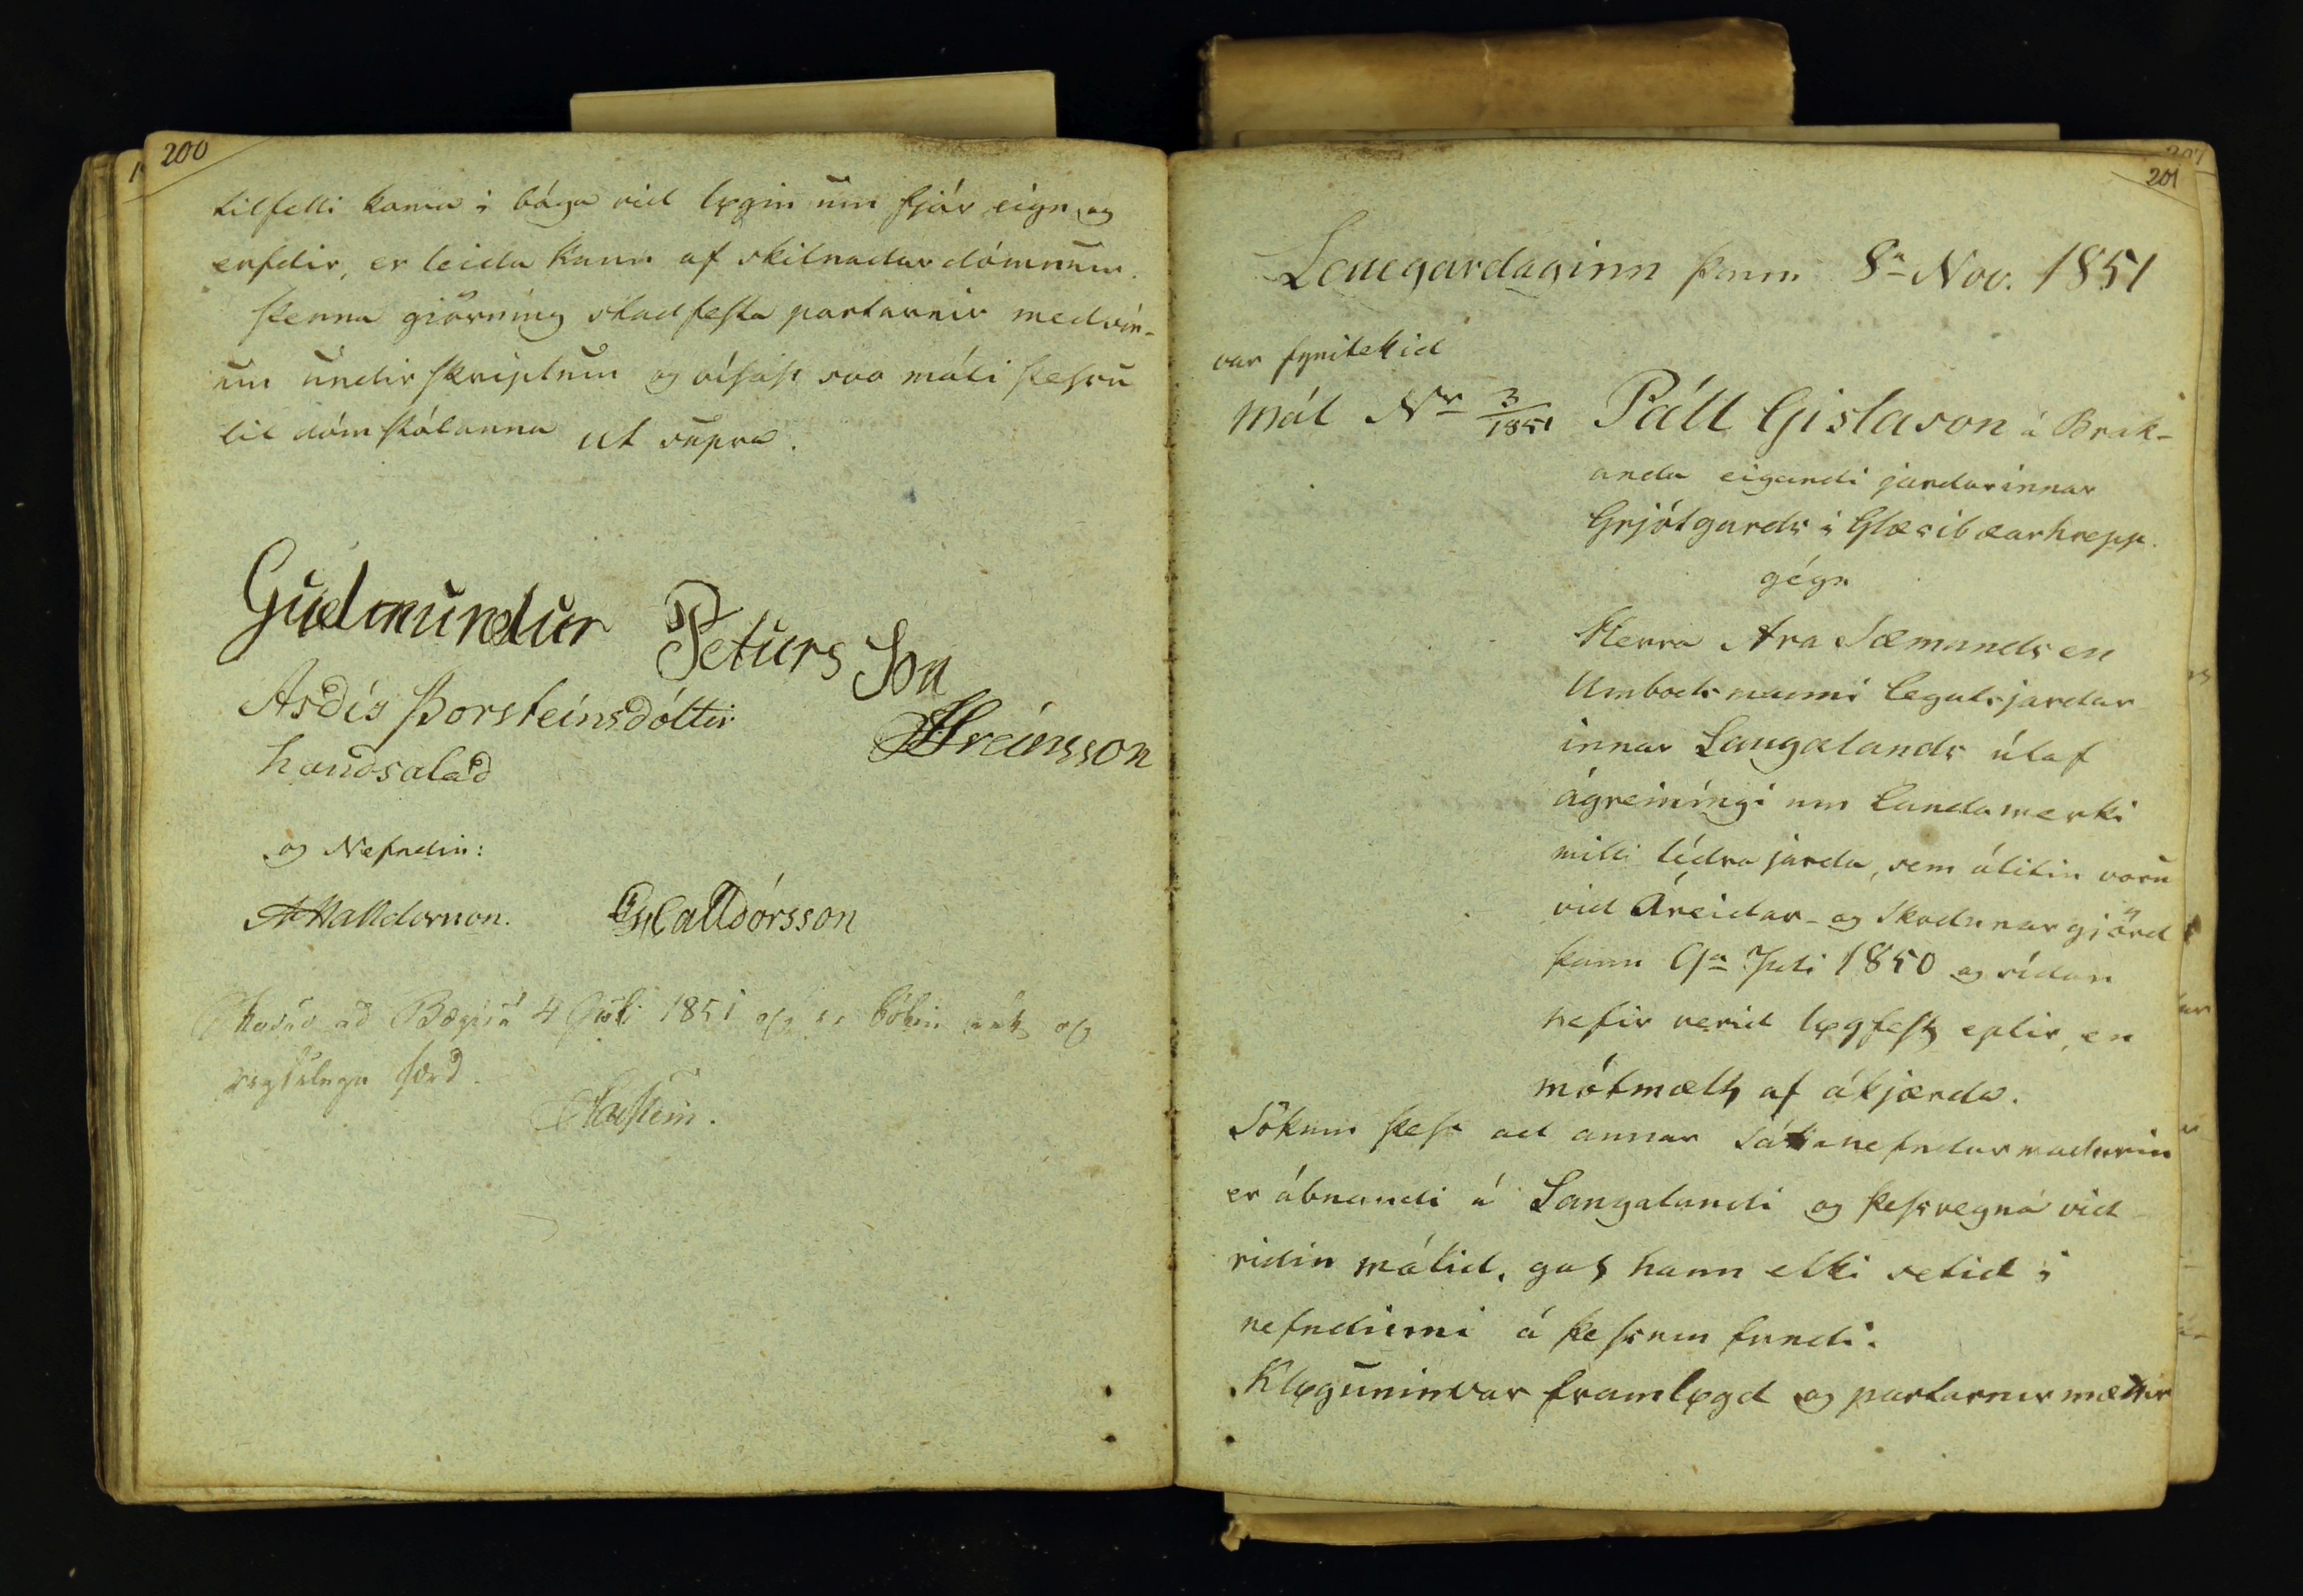 200
tilfelli koma i bága vid lögin um fjár eign og
erfdir, er leida kann af skilnadar dómnum.
Þenna giörning stadfesta partarnir med sín-
um undirskriptum og vísast svo máli þessu
til dómstólanna ut supra.
Gudmundur Peturs Son
Asdís Þorsteinsdóttir
handsalad
Hreinsson
og Nefndin:
A Halldorsson. Halldórsson
Skodud ad Bægisá 4 Juli 1851 og er bókin rétt og
reglulega færd.
Hafstein.
201
Laugardaginn þann 8a Nov. 1851
var fyritekid
Mál Nr 3/1851 Páll Gislason á Brak-
anda eigandi jardarinnar
Grjótgards i Glæsibæarhrepp.
gégn
Herra Ara Sæmundsen
Umbodsmanni legatsjardar
innar Laugalands útaf
ágreiníngi um Landamerki
milli tédra jarda, sem álitin voru
vid Áreidar- og Skodunargjörd
þann 9a Juli 1850 og sídan
hefir verid lögfest eptir, en
mótmælt af ákjærda.
Sökum þess ad annar Sáttanefndarmadurin
er ábuandi á Laugalandi og þessvegna vid
ridin málid, gat hann ekki setid i
nefndinni á þessum fundi.
Klögunin var framlögd og partarnir mættir